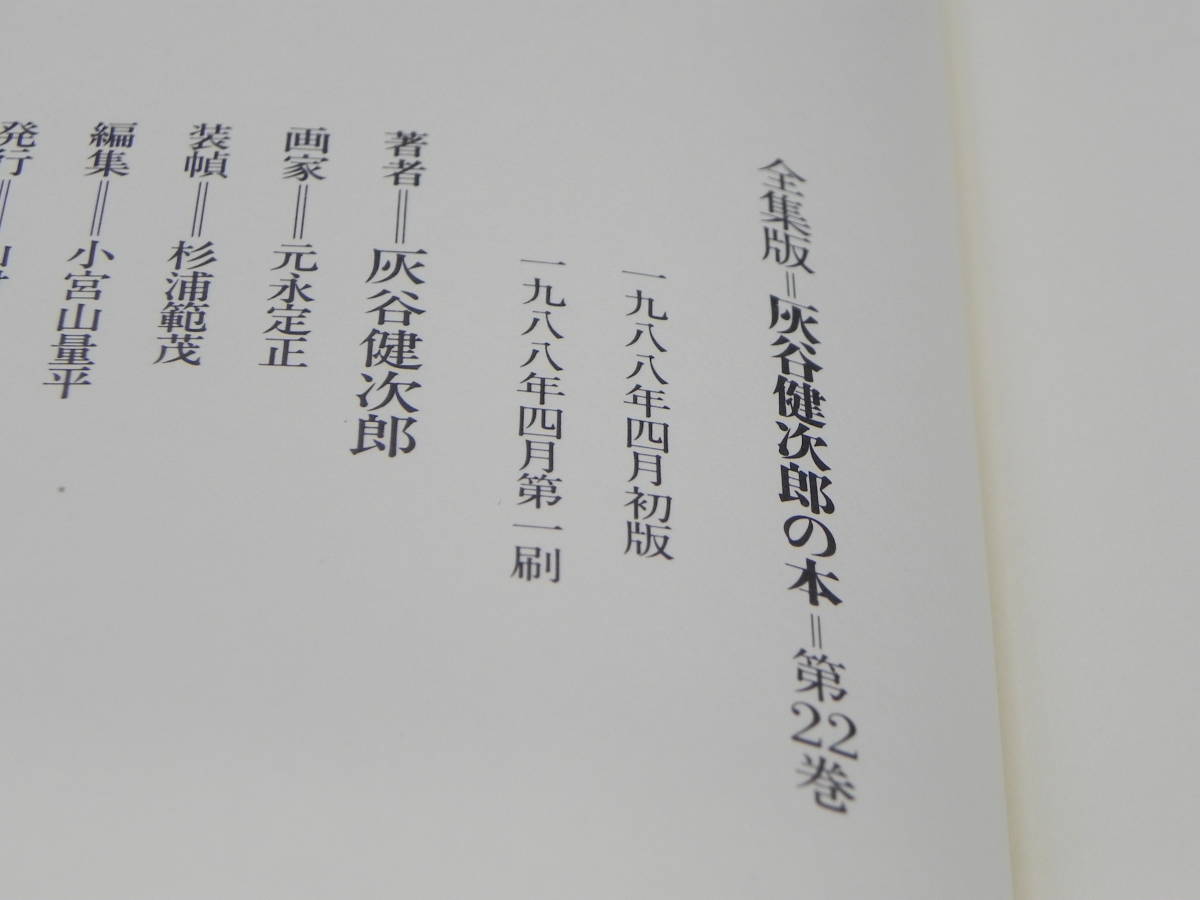 全集版＝灰谷健次郎の本＝第22巻
一九八八年四月初版
一九八八年四月第一刷
著者＝灰谷健次郎
画家＝元永定正
装幀＝杉浦範茂
編集＝小宮山量平
発行＝山